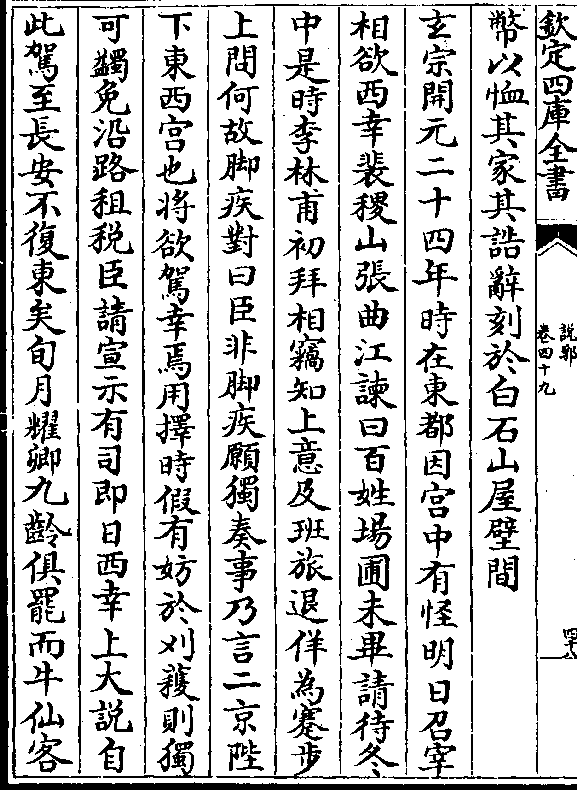 欽定四庫全書
說郛
卷四十九
四十八
幣以恤其家其誥辭刻於白石山屋壁間
玄宗開元二十四年時在東都因宮中有怪明日召宰
相欲西幸裴稷山張曲江諫曰百姓場圃未畢請待冬
中是時李林甫初拜相竊知上意及班旅退佯為蹇步
上問何故脚疾對曰臣非脚疾願獨奏事乃言二京陛
下東西宮也將欲駕幸焉用擇時假有妨於刈穫則獨
可蠲免沿路租稅臣請宣示有司即日西幸上大說自
此駕至長安不復東矣旬月耀卿九齡俱罷而牛仙客